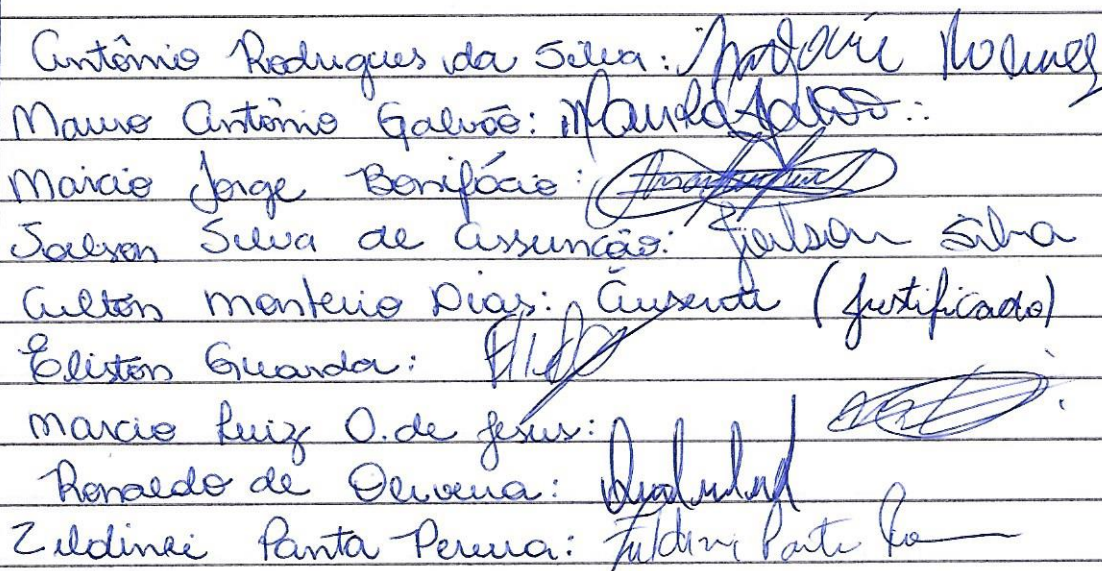 Antônio Rodrigues da Silva:
Mauro Antônio Galvão:
Marcio Jorge Bonifácio:
Joelson Silva de Assunção: Joelson Silva
Ailton Monteiro Dias: Ausente (justificado)
Eliston Guarda:
Marcio Luiz O. de Jesus:
Ronaldo de Oliveira:
Zildinei Panta Pereira: